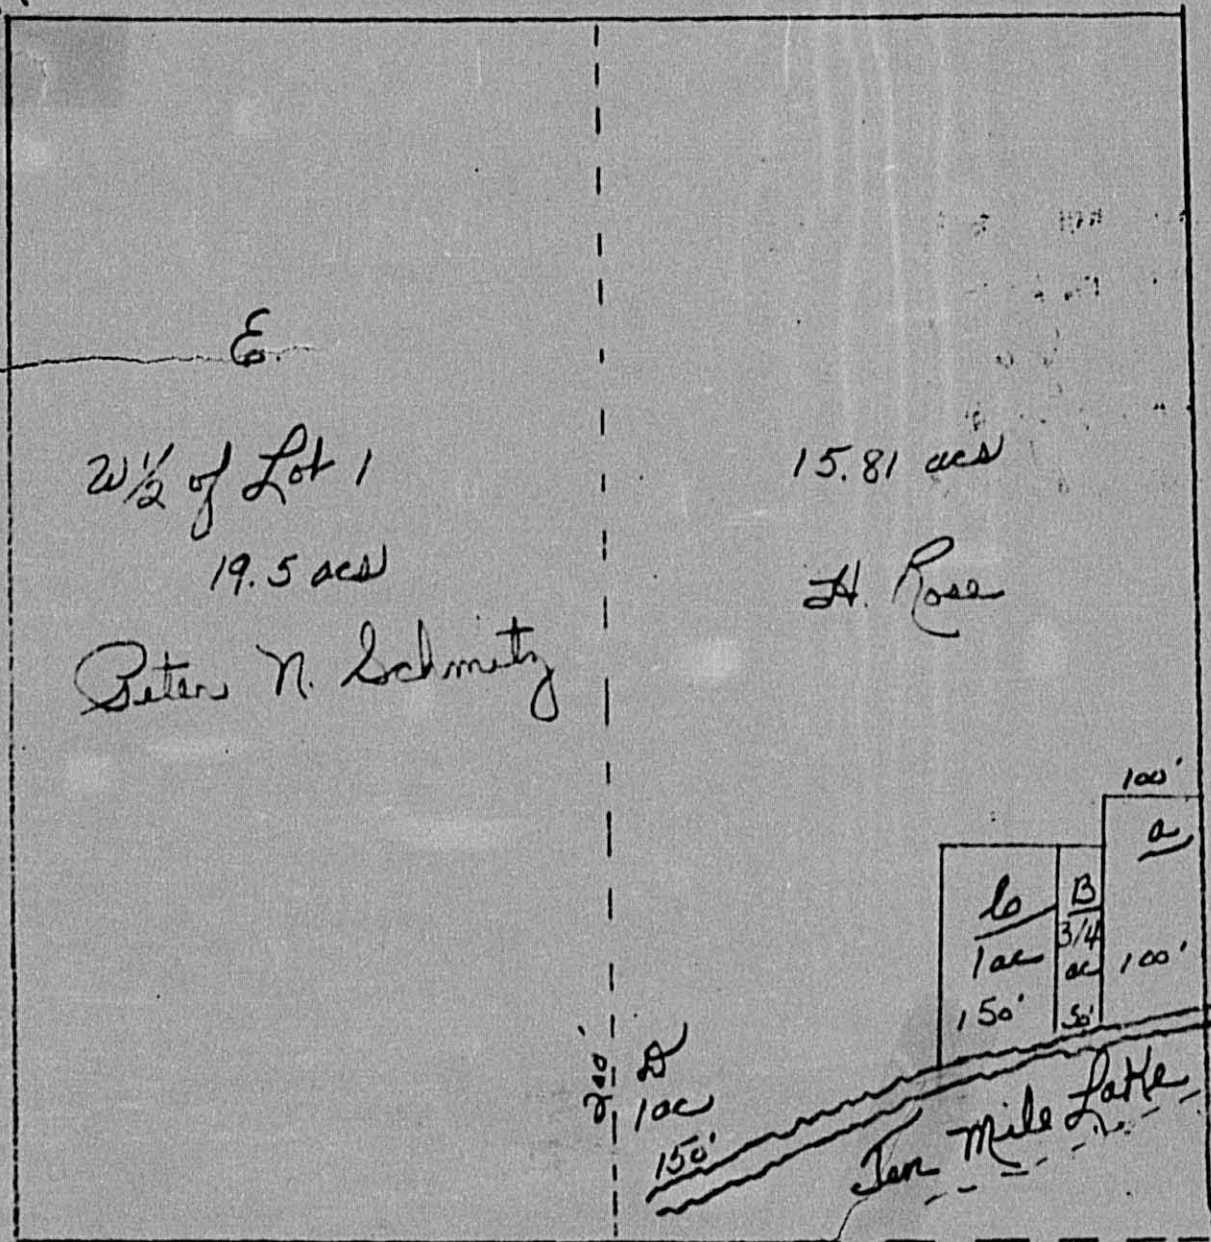 E.
W 1/2 of Lot 1
19.5 acs
Peter N. Schmitz
15.81 acs
H. Rose
100'
a
100'
B
3/4
ac
50'
1 ac
150'
D
1 ac
150'
200'
Ten Mile Lake